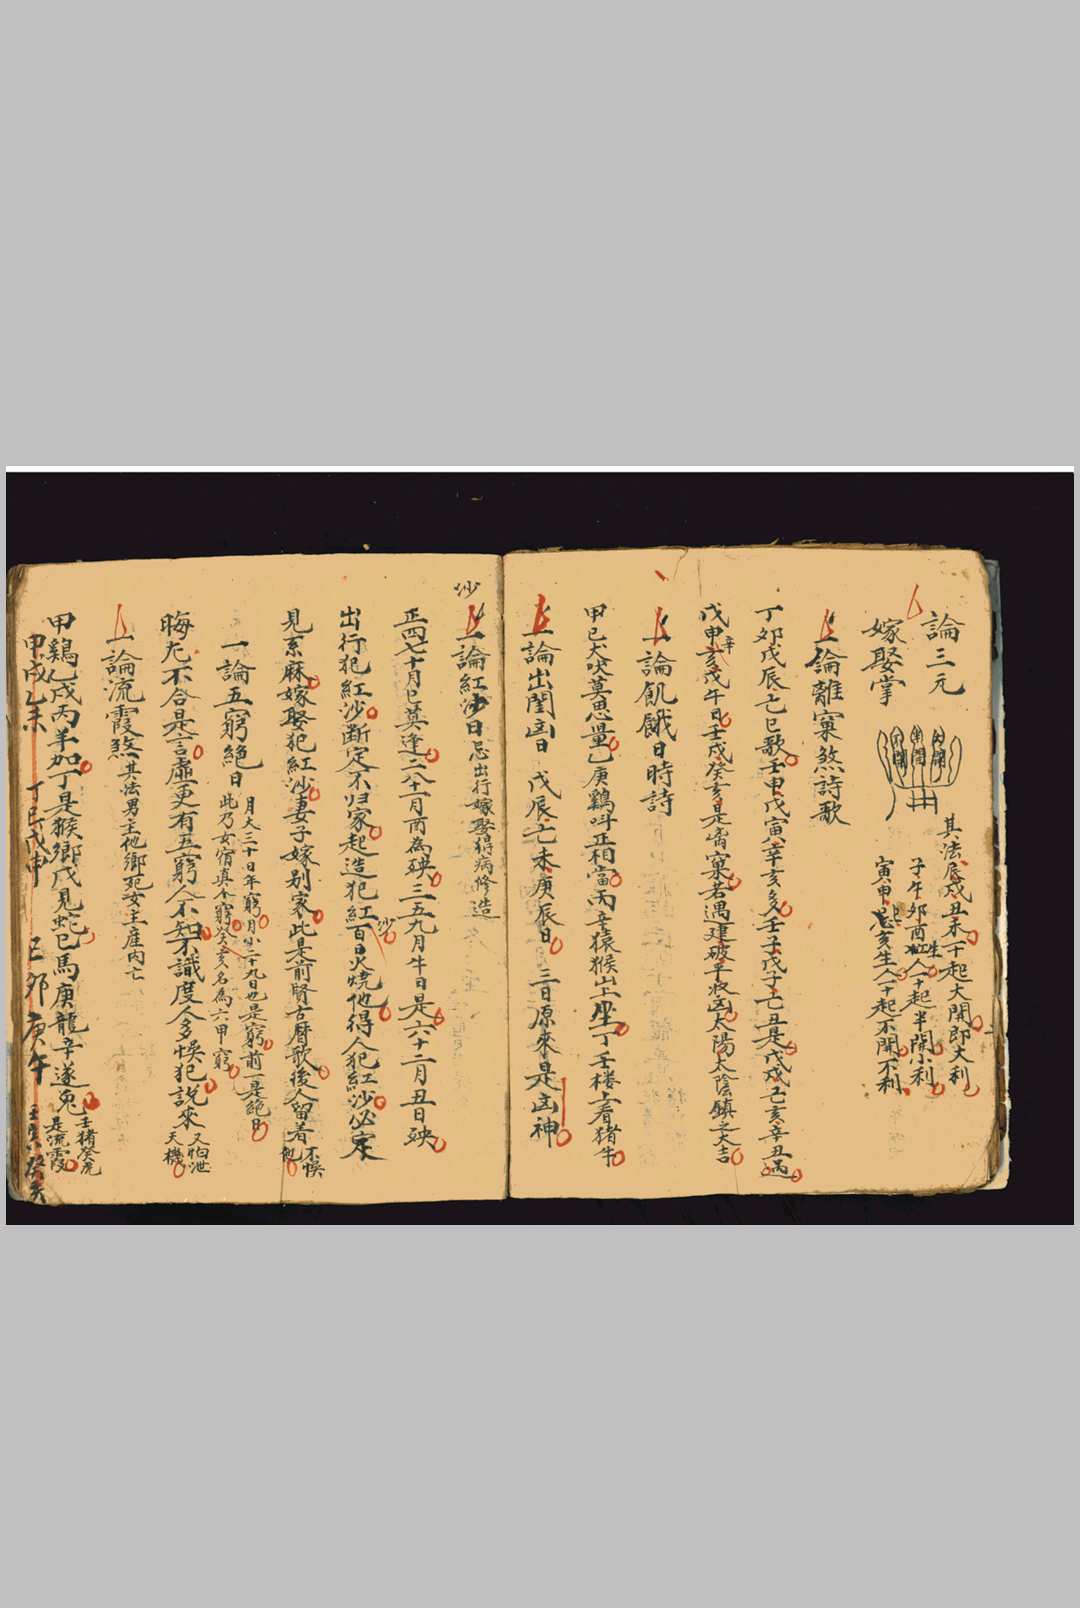 論三元
嫁娶掌
大開
半開
不開
其法辰戌丑未人十起大開即大利
子午卯酉生人十起半開小利
寅申巳亥生人十起不開不利
一論離窠煞詩歌
丁卯戊辰亡巳歌壬申戊寅幸亥多壬子戊子亡丑是戊戌己亥辛丑
戊申辛亥戊午日壬戌癸亥是离窠若遇建破平收凶太陽太陰鎮之大吉
一論飢餓日時詩
甲巳犬吠莫思量乙庚鷄叫正相當丙辛猿猴山上座丁壬楼上看猪牛
一論出閨凶日 戊辰亡未庚辰日 三日原來是凶神
沙
一論紅沙日忌出行嫁娶得病修造
正四七十月巳莫逢二八十一月酉為殃三五九月牛日是六十二月丑日殃
出行犯紅沙断定不归家起造犯紅沙百日火焼他得人犯紅沙必定
見系麻嫁娶犯紅沙妻子嫁别家此是前賢古曆歌後人留着不悞他
一論五窮絕日
月大三十日年窮月小二十九日也是窮前一是絕日
此乃女宿真不窮癸亥名為六甲窮
晦尢不合是言虛更有五窮人不知不識度人多悞犯說來又怕泄天機
一論流霞煞其法男主他鄉死女主産内亡
甲鷄乙戌丙羊加丁是猴鄉戊見蛇巳馬庚龍辛遂兔壬猪癸虎是流霞
甲戌乙未 丁巳戊申 己卯庚午 壬寅癸亥